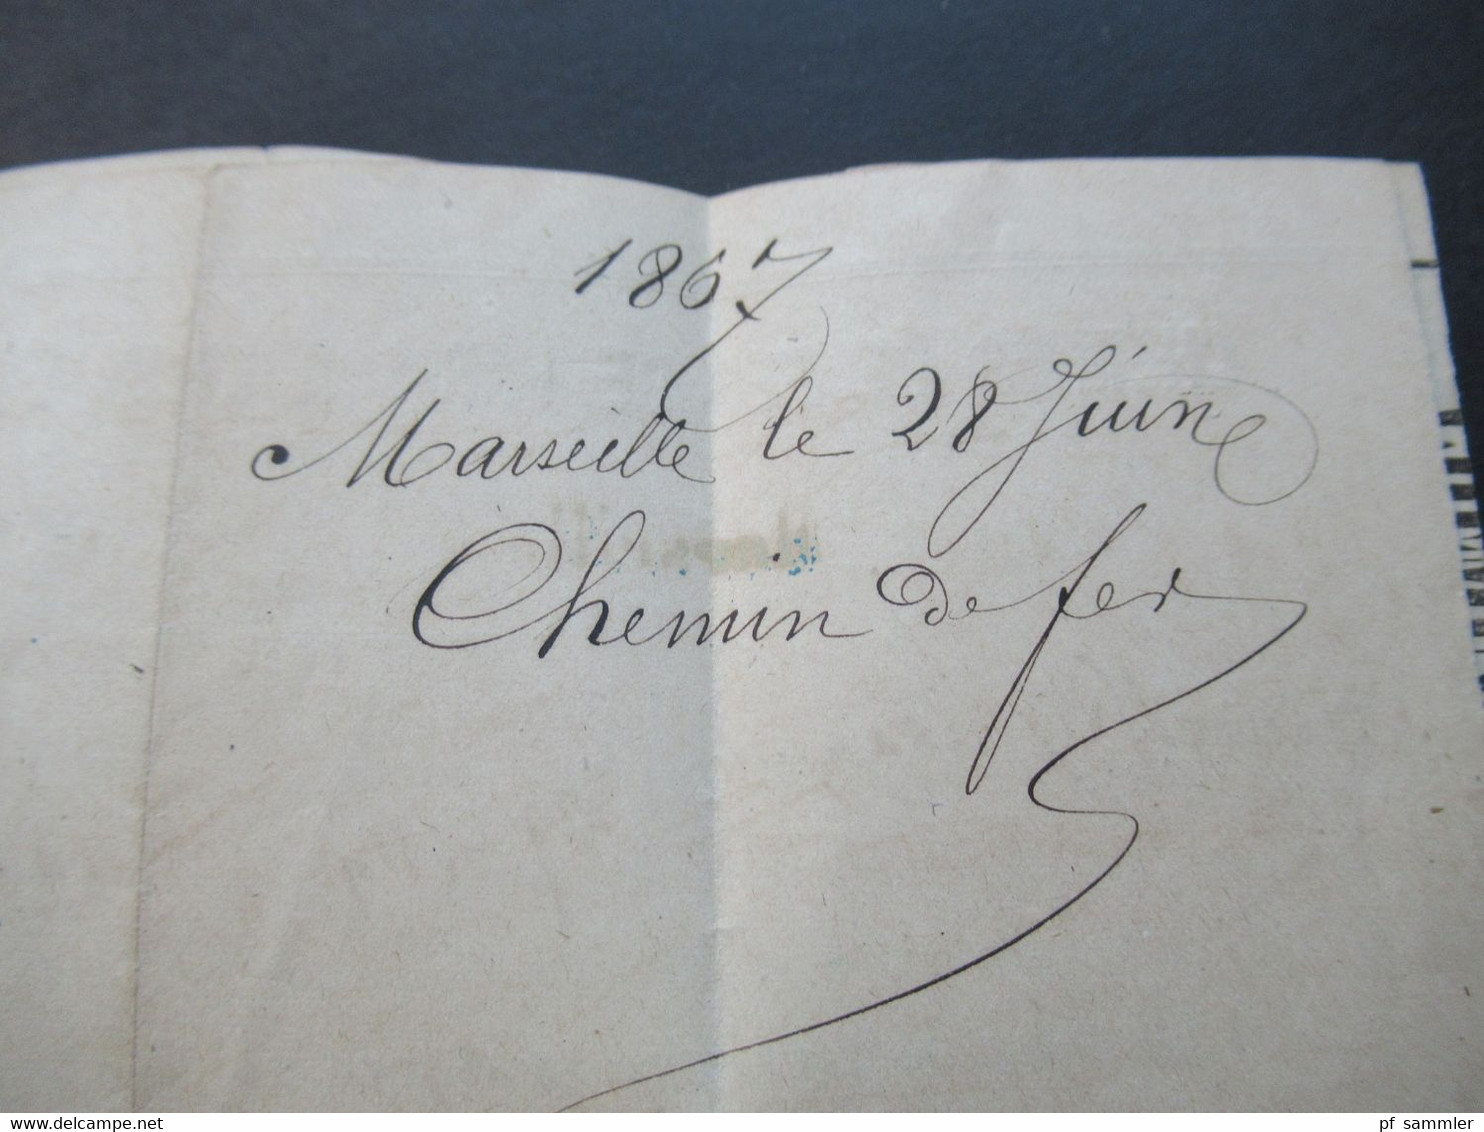 1867
Marseille le 28 Juin
Chemin de fer
delcampe.net
pf_sammler